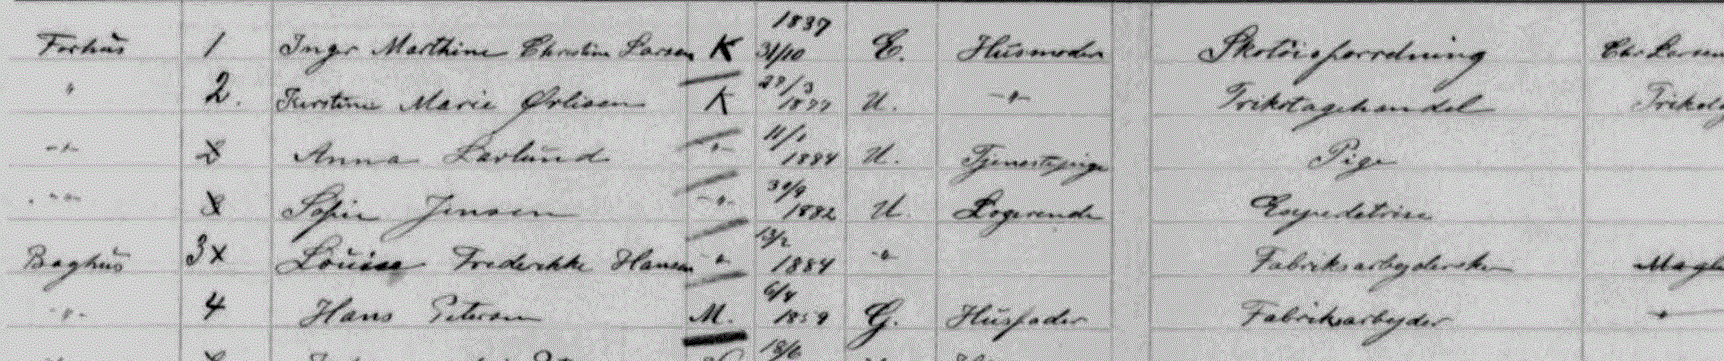 1837
Forhus 1 Inger Marthine Christine Larsen K 31/10 E. Husmoder Skotøiforretning Chr Larsen
" 2. Kirstine Marie K 1877 U. -"- Trikotagehandel
-"- Anna Laulund -"- 11/1 1884 U. Tjenestepige Pige
-"- Sofie Jensen -"- 30/9 1882 U. Logerende Expeditrise
Baghus 3 x Louise Frederikke Hansen -"- 13/2 1884 -"- Fabriksarbejderske
-"- 4 Hans Petersen M. 6/4 G. Husfader Fabriksarbejder -"-
18/6